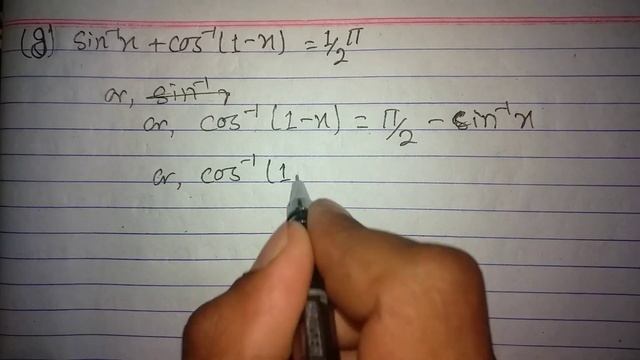 (g) sin⁻¹x + cos⁻¹(1-x) = 1/2 π
or, sin⁻¹
or, cos⁻¹ (1-x) = π/2 - sin⁻¹x
or, cos⁻¹ (1